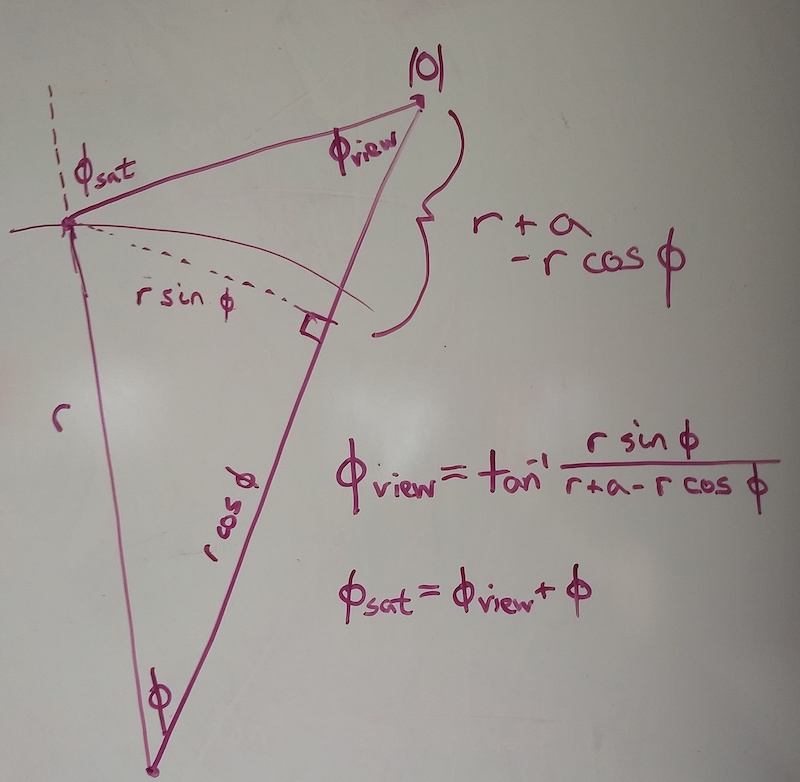 |O|
ϕsat
ϕview
r + a
- r cos ϕ
r sin ϕ
r
r cos ϕ
ϕview = tan⁻¹ r sin ϕ / r+a-r cos ϕ
ϕsat = ϕview + ϕ
ϕ